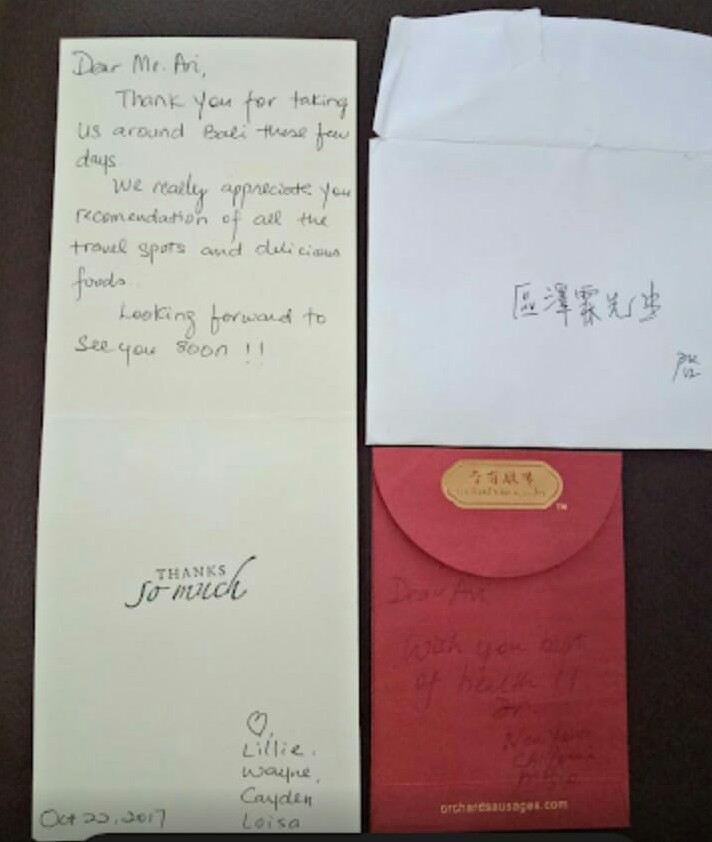 Dear Mr. Ari,
Thank you for taking
us around Bali these few
days
We really appreciate you
recomendation of all the
travel spots and delicious
foods.
Looking forward to
see you soon !!
THANKS
so much
♡,
Lillie,
Wayne,
Cayden
Loisa
Oct 22, 2017
區澤霖先生
啓
TM
Dear Ari
Wish you best
of health !!
orchardsausages.com